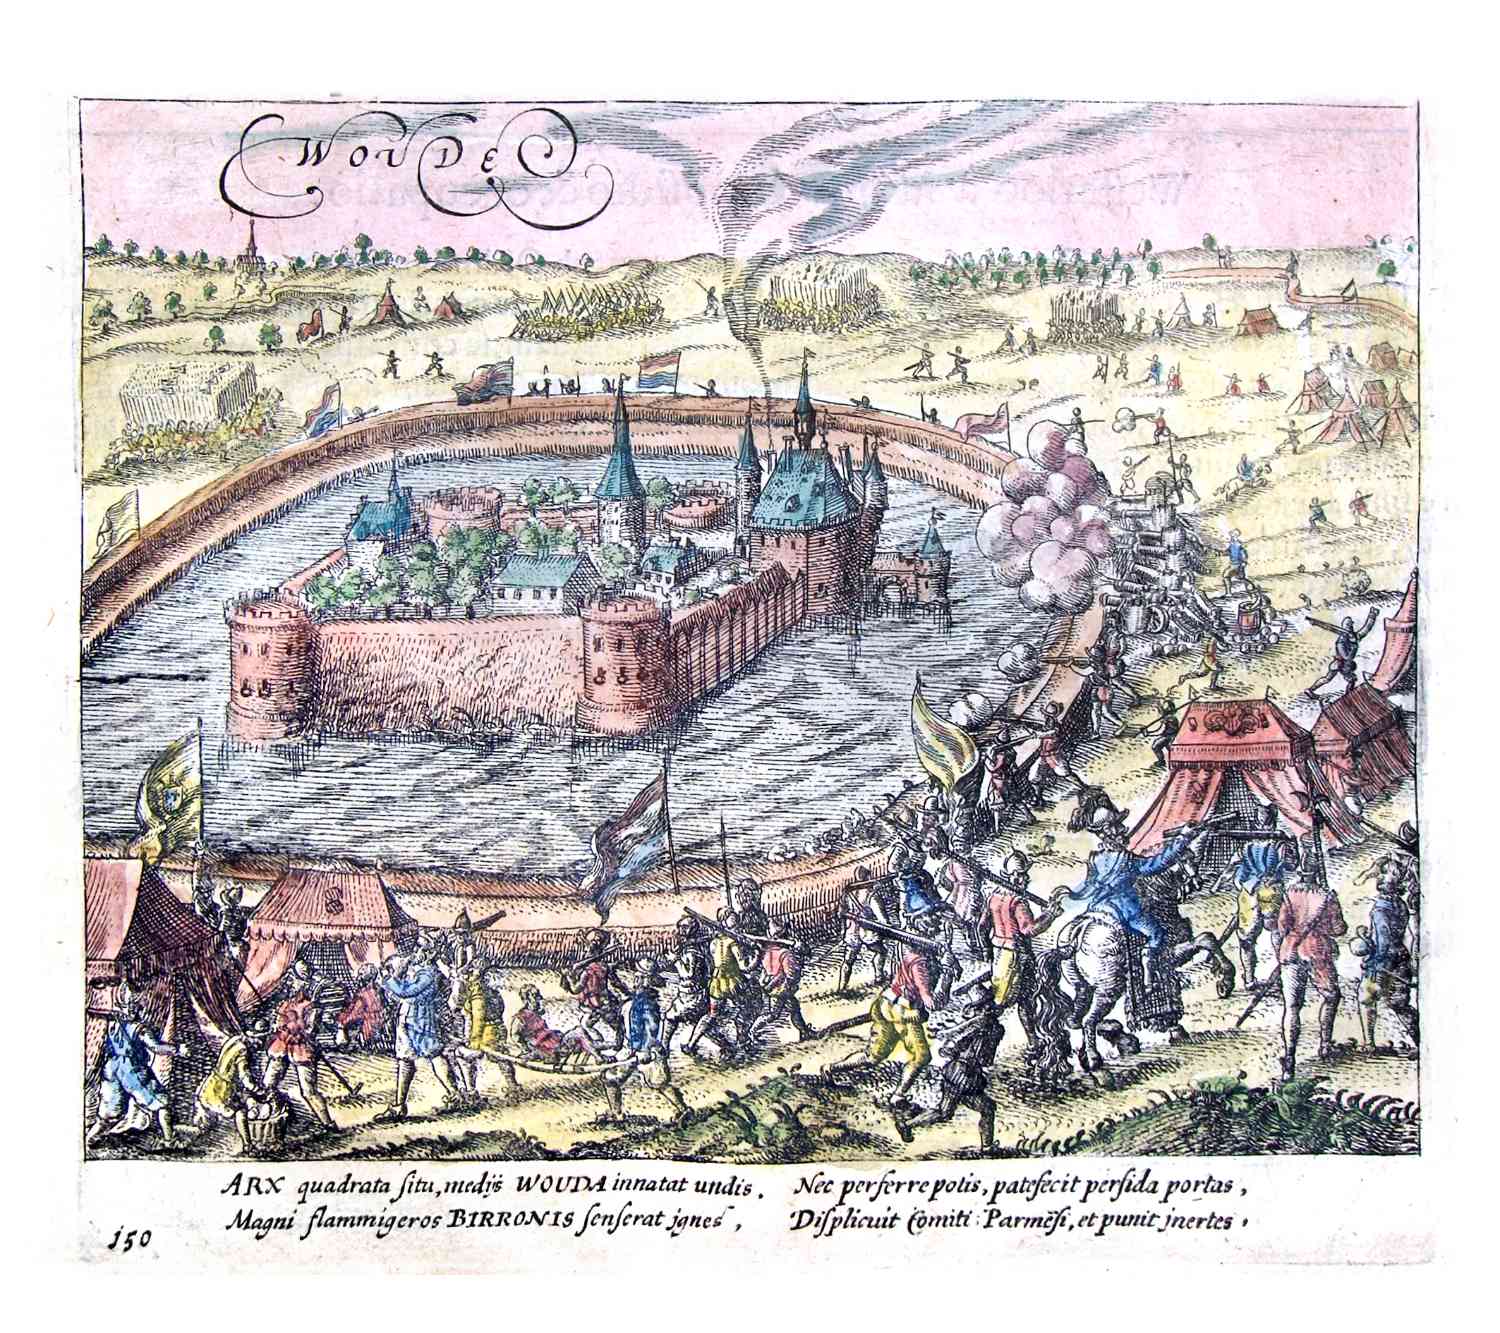 WOUDE
ARX quadrata situ, medijs WOUDA innatat undis.
Magni flammigeros BIRRONIS senserat ignes,
Nec perferre potis, patefecit perfida portas,
Displicuit Comiti Parmēsi, et punit inertes.
150